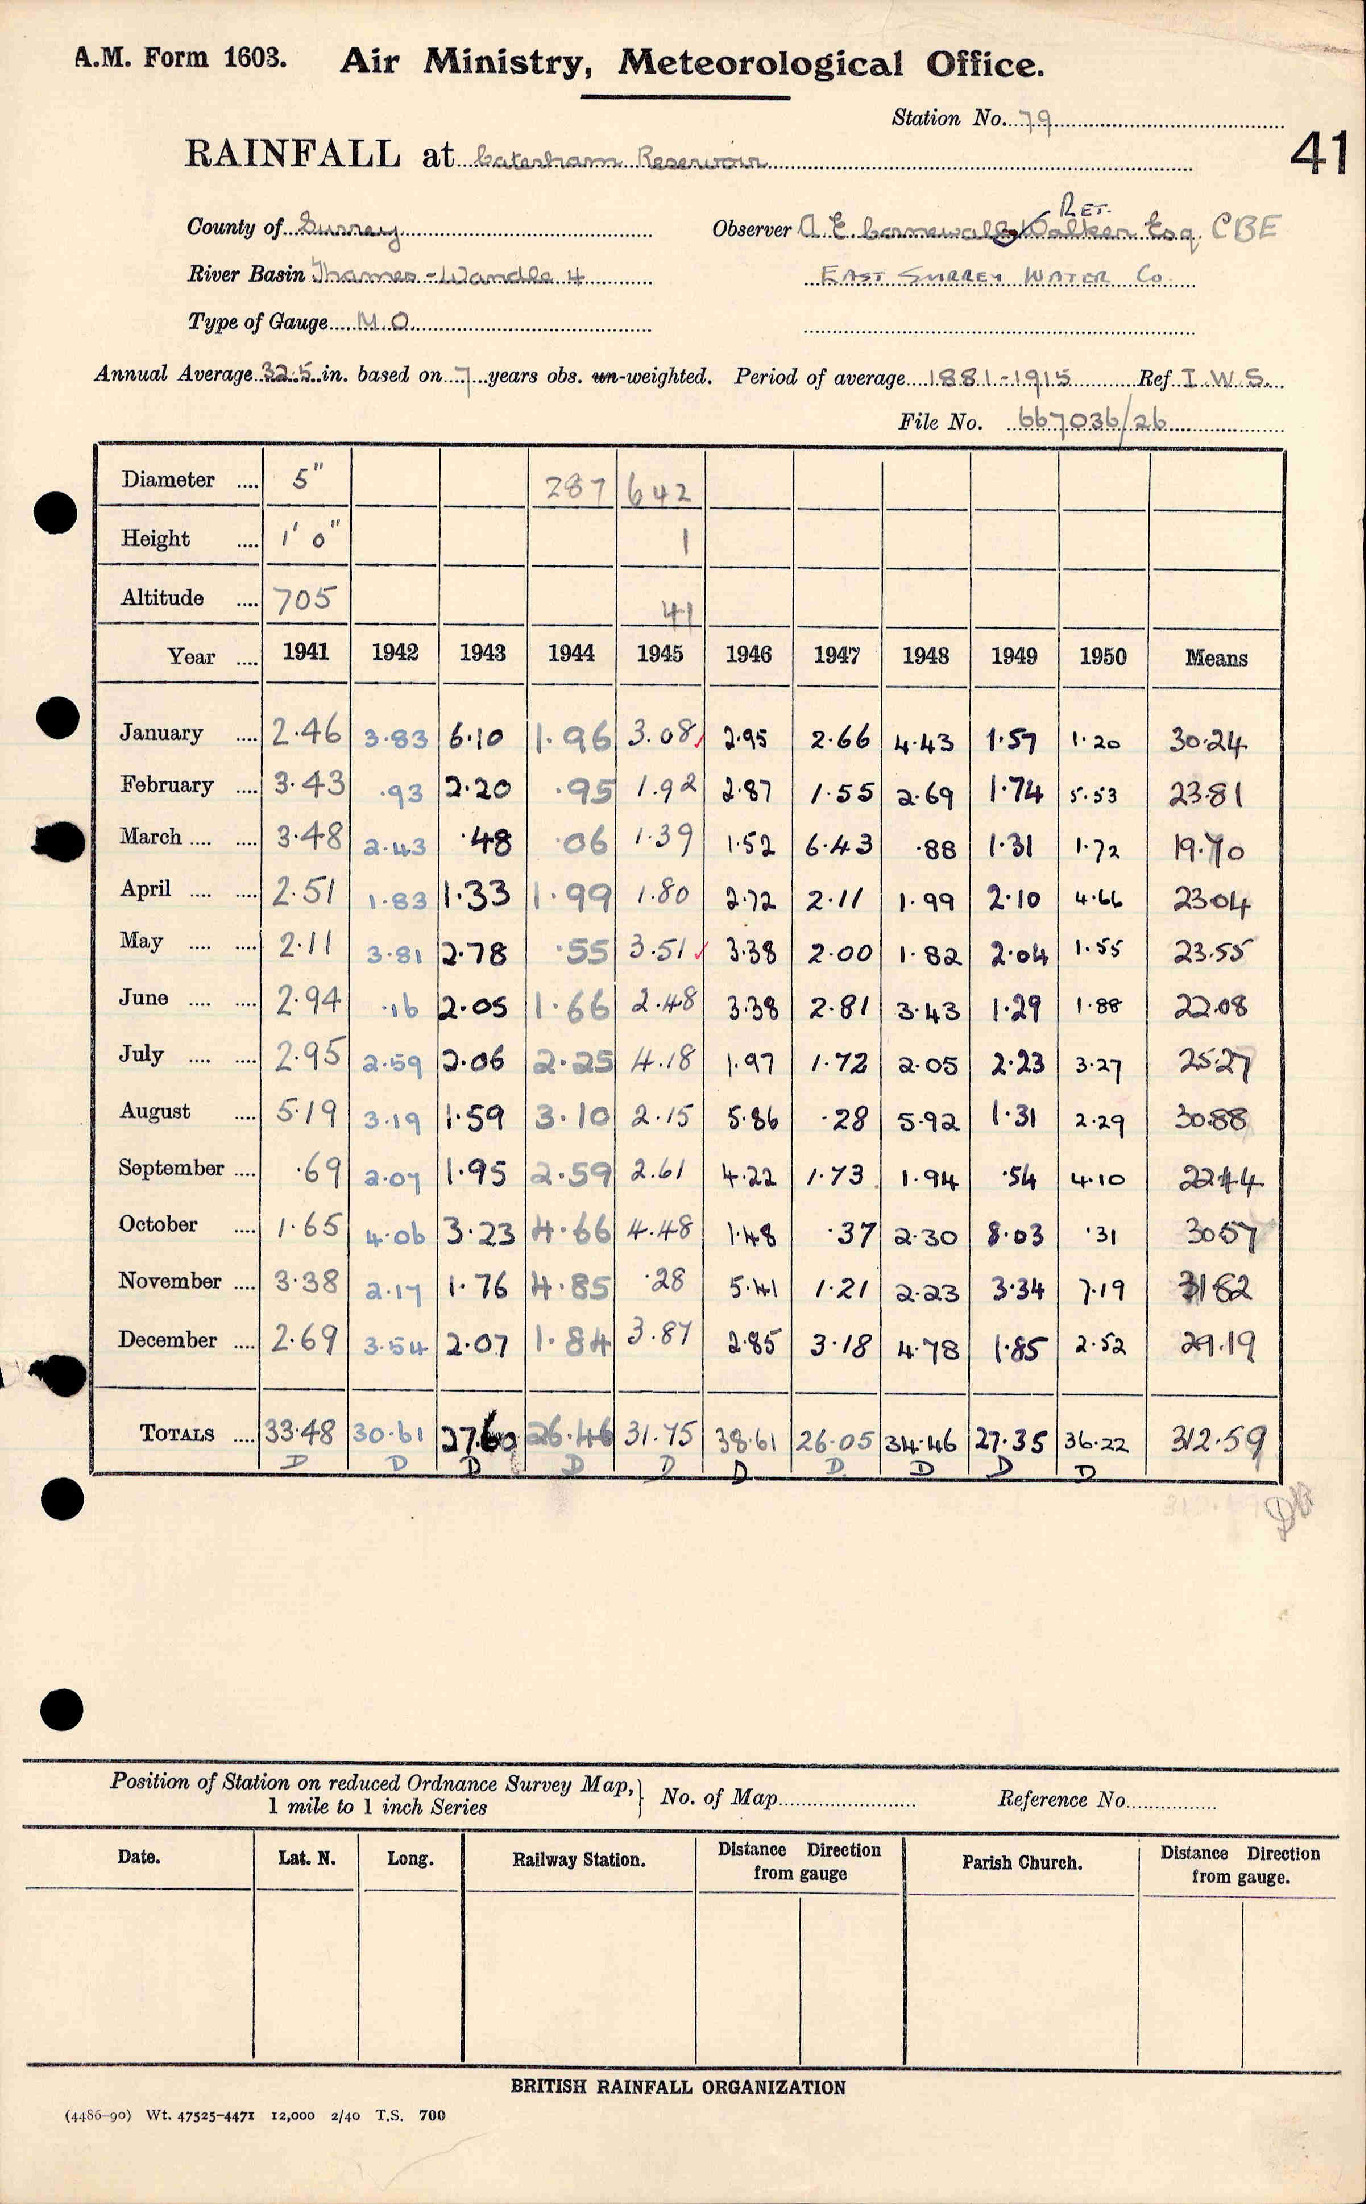 A.M. Form 1603. Air Ministry, Meteorological Office.
Station No. 79
41
RAINFALL at Caterham Reservoir
Ret.
County of Surrey Observer A E Cornewall-Walker Esq CBE
River Basin Thames-Wandle 4 EAST SURREY WATER Co.
Type of Gauge M O
Annual Average 32.5 in. based on 7 years obs. un-weighted. Period of average 1881-1915 Ref I.W.S.
File No. 667036/26
Diameter .... 5" 287 642
Height .... 1' 0" 1
Altitude .... 705 41
Year .... 1941 1942 1943 1944 1945 1946 1947 1948 1949 1950 Means
January .... 2.46 3.83 6.10 1.96 3.08 2.95 2.66 4.43 1.57 1.20 30.24
February .... 3.43 .93 2.20 .95 1.92 2.87 1.55 2.69 1.74 5.53 23.81
March .... .... 3.48 2.43 .48 .06 1.39 1.52 6.43 .88 1.31 1.72 19.70
April .... .... 2.51 1.83 1.33 1.99 1.80 2.72 2.11 1.99 2.10 4.66 23.04
May .... .... 2.11 3.81 2.78 .55 3.51 3.38 2.00 1.82 2.04 1.55 23.55
June .... .... 2.94 .16 2.05 1.66 2.48 3.38 2.81 3.43 1.29 1.88 22.08
July .... .... 2.95 2.59 2.06 2.25 4.18 1.97 1.72 2.05 2.23 3.27 25.27
August .... 5.19 3.19 1.59 3.10 2.15 5.86 .28 5.92 1.31 2.29 30.88
September .... .69 2.07 1.95 2.59 2.61 4.22 1.73 1.94 .54 4.10 22.44
October .... 1.65 4.06 3.23 4.66 4.48 1.48 .37 2.30 8.03 .31 30.57
November .... 3.38 2.17 1.76 4.85 .28 5.41 1.21 2.23 3.34 7.19 31.82
December .... 2.69 3.54 2.07 1.84 3.87 2.85 3.18 4.78 1.85 2.52 29.19
TOTALS .... 33.48 30.61 27.60 26.46 31.75 38.61 26.05 34.46 27.35 36.22 312.59
D D D D D D D D D D
Position of Station on reduced Ordnance Survey Map, } No. of Map Reference No.
1 mile to 1 inch Series
Date. Lat. N. Long. Railway Station. Distance Direction from gauge Parish Church. Distance Direction from gauge.
BRITISH RAINFALL ORGANIZATION
(4486-90) Wt. 47525-4471 12,000 2/40 T.S. 700